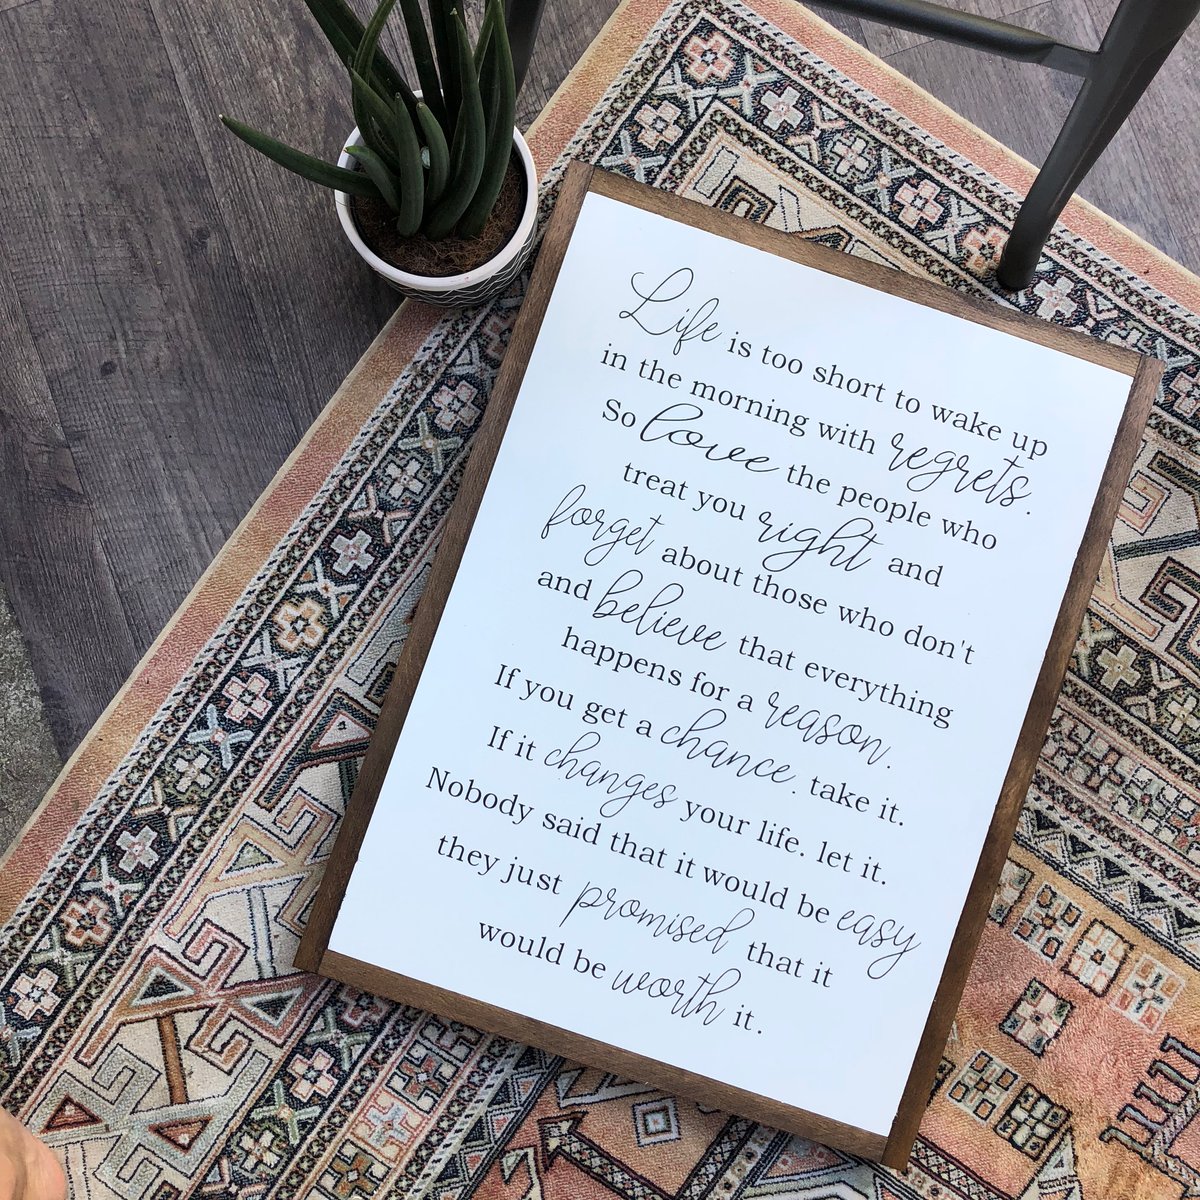 Life is too short to wake up
in the morning with regrets.
So love the people who
treat you right and
forget about those who don't
and believe that everything
happens for a reason.
If you get a chance. take it.
If it changes your life. let it.
Nobody said that it would be easy
they just promised that it
would be worth it.